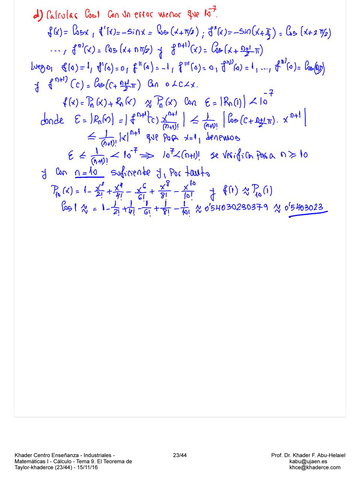 d) Calcular Cos1 con un error menor que 10⁻⁷.
f(x) = Cosx, f'(x) = -sinx = Cos(x+π/2); f''(x) = -sin(x+π/2) = Cos(x+2π/2)
..., f⁽ⁿ⁾(x) = Cos(x+nπ/2) y f⁽ⁿ⁺¹⁾(x) = Cos(x+(n+1)/2 π)
luego, f(0)=1, f'(0)=0, f''(0)=-1, f'''(0)=0, f⁽⁴⁾(0)=1, ..., f⁽ⁿ⁾(0)=Cos
y f⁽ⁿ⁺¹⁾(c) = Cos(c+(n+1)/2 π) con 0<c<x.
f(x) = Pₙ(x) + Rₙ(x) ≈ Pₙ(x) con ε = |Rₙ(1)| < 10⁻⁷
donde ε = |Rₙ(x)| = |f⁽ⁿ⁺¹⁾(c) xⁿ⁺¹/(n+1)!| ≤ 1/(n+1)! |Cos(c+(n+1)/2 π) · xⁿ⁺¹|
≤ 1/(n+1)! |x|ⁿ⁺¹ que para x=1, tenemos
ε ≤ 1/(n+1)! < 10⁻⁷ ⟹ 10⁷ < (n+1)! se verifica para n ≥ 10
y con n=10 suficiente y, por tanto
P₁₀(x) = 1 - x²/2! + x⁴/4! - x⁶/6! + x⁸/8! - x¹⁰/10! y f(1) ≈ P₁₀(1)
Cos1 ≈ = 1 - 1/2! + 1/4! - 1/6! + 1/8! - 1/10! ≈ 0'54030230379 ≈ 0'5403023
Khader Centro Enseñanza - Industriales - 23/44 Prof. Dr. Khader F. Abu-Helaiel
Matemáticas I - Cálculo - Tema 9. El Teorema de kabu@ujaen.es
Taylor-khaderce (23/44) - 15/11/16 khce@khaderce.com